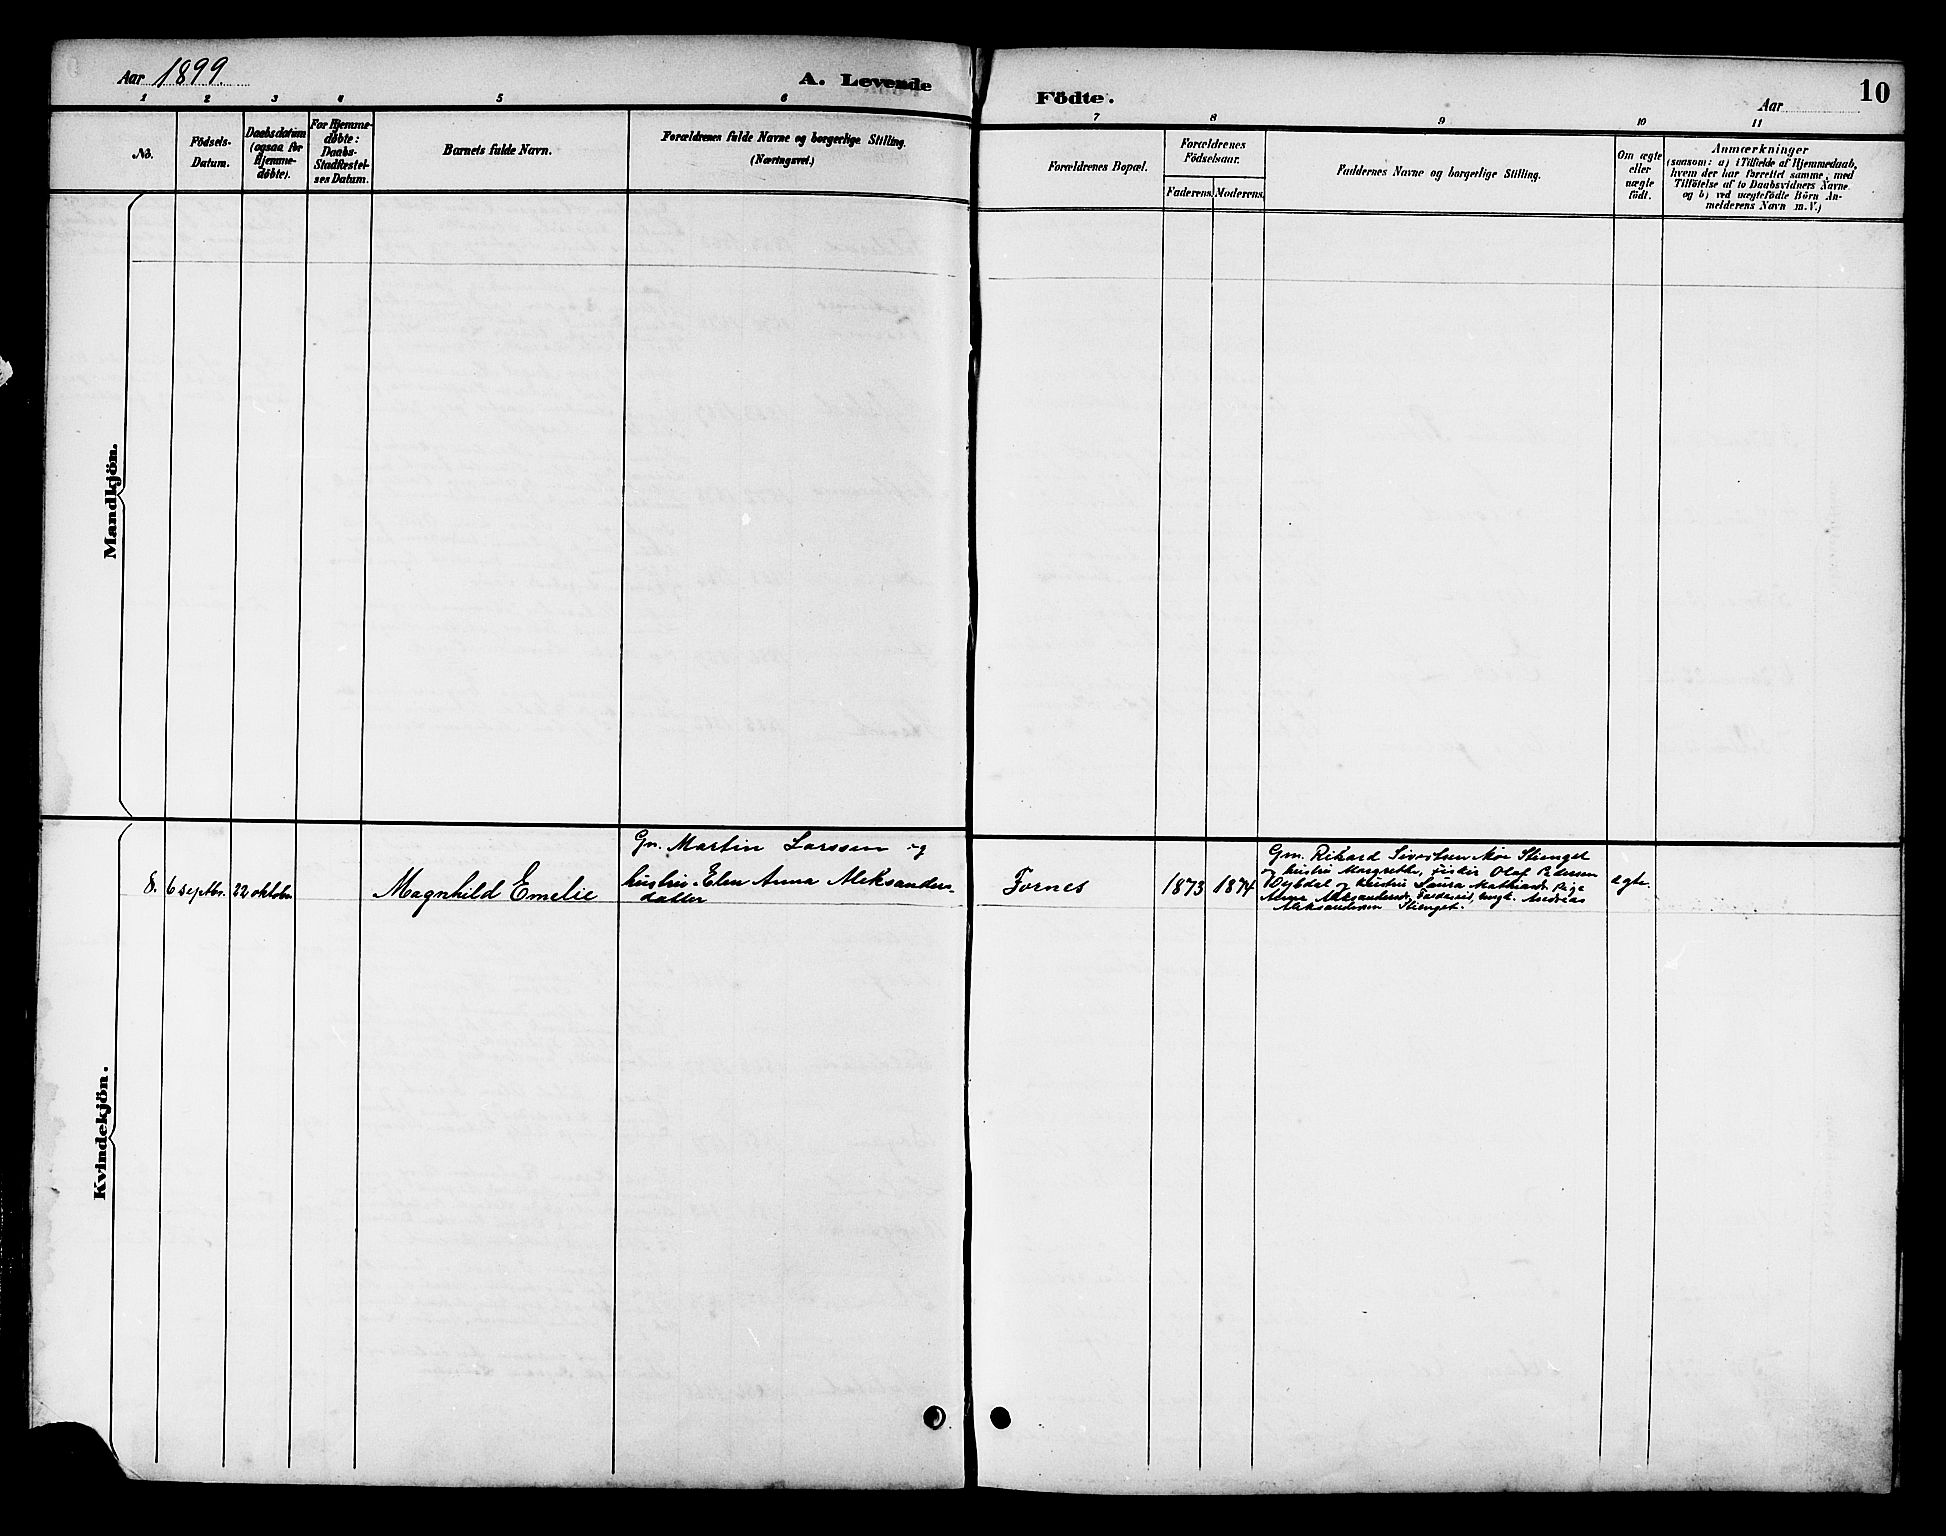 Aar 1899.
A. Levende
Födte.
Aar
10
1 2 3 4 5 6 7 8 9 10 11
No.
Födsels-
Datum.
Daabsdatum
(ogsaa for
Hjemme-
döbte).
For Hjemme-
døbte:
Daabs-
Stadfæstel-
ses Datum.
Barnets fulde Navn.
Forældrenes fulde Navne og borgerlige Stilling.
(Næringsvei.)
Forældrenes Bopæl.
Forældrenes
Födselsaar.
Faderens. Moderens.
Faddernes Navne og borgerlige Stilling.
Om ægte
eller
uægte
födt.
Anmærkninger
(saasom: a) i Tilfælde af Hjemmedaab,
hvem der har forrettet samme, med
Tilföielse af to Daabsvidners Navne
og b) ved uægtefödte Börn An-
melderens Navn m. V.)
Mandkjön.
Kvindekjön.
8. 6 septbr. 22 oktobr. Magnhild Emelie
Gn. Martin Larssen og
hustru Elen Anna Aleksanders-
datter
Fornes
1873 1874
Gm. Rikard Sivertsen Moe Stienget
og hustru Margrethe, fisker Olaf Pedersen
og hustru Laura Mathiasd. Pige
Anna Aleksandersd. ungk. Andreas
Aleksandersen Stienget.
ægte.